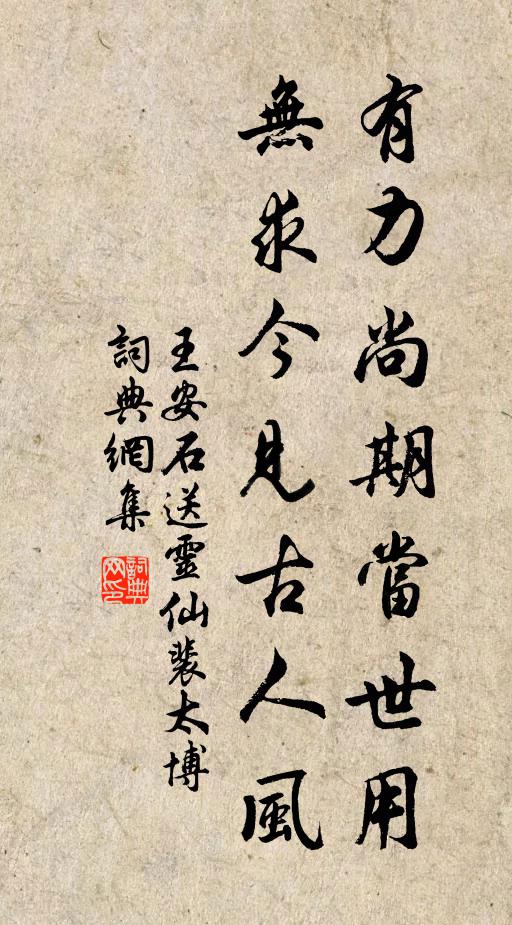 有力尚期當世用
無求今見古人風
王安石送靈仙裴太博
詞典網集
詞典网印